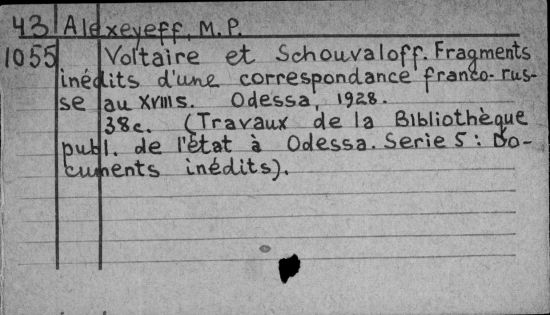 43 Alexeyeff, M. P.
1055 Voltaire et Schouvaloff. Fragments
inédits d'une correspondance franco-rus-
se au XVIIIs. Odessa, 1928.
38c. (Travaux de la Bibliothèque
publ. de l'état à Odessa. Serie 5: Do-
cuments inédits).